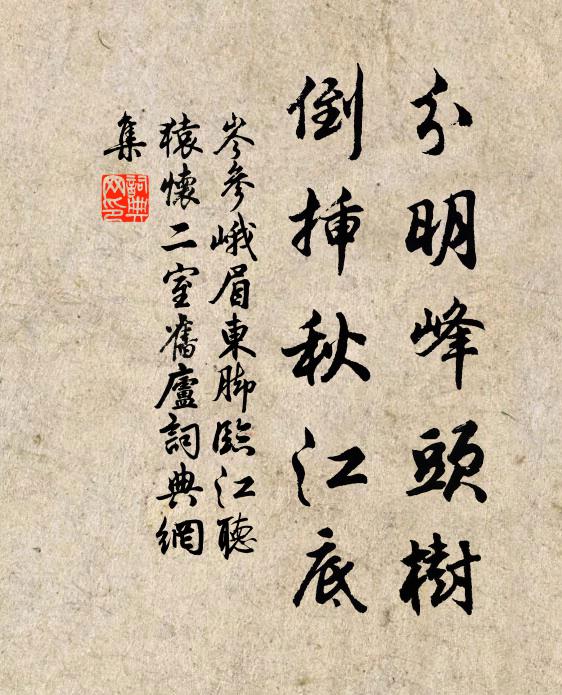 分明峰頭樹
倒挿秋江底
岑參峨眉東脚臨江聽
猿懷二室舊廬詞典網
集
詞典
网印